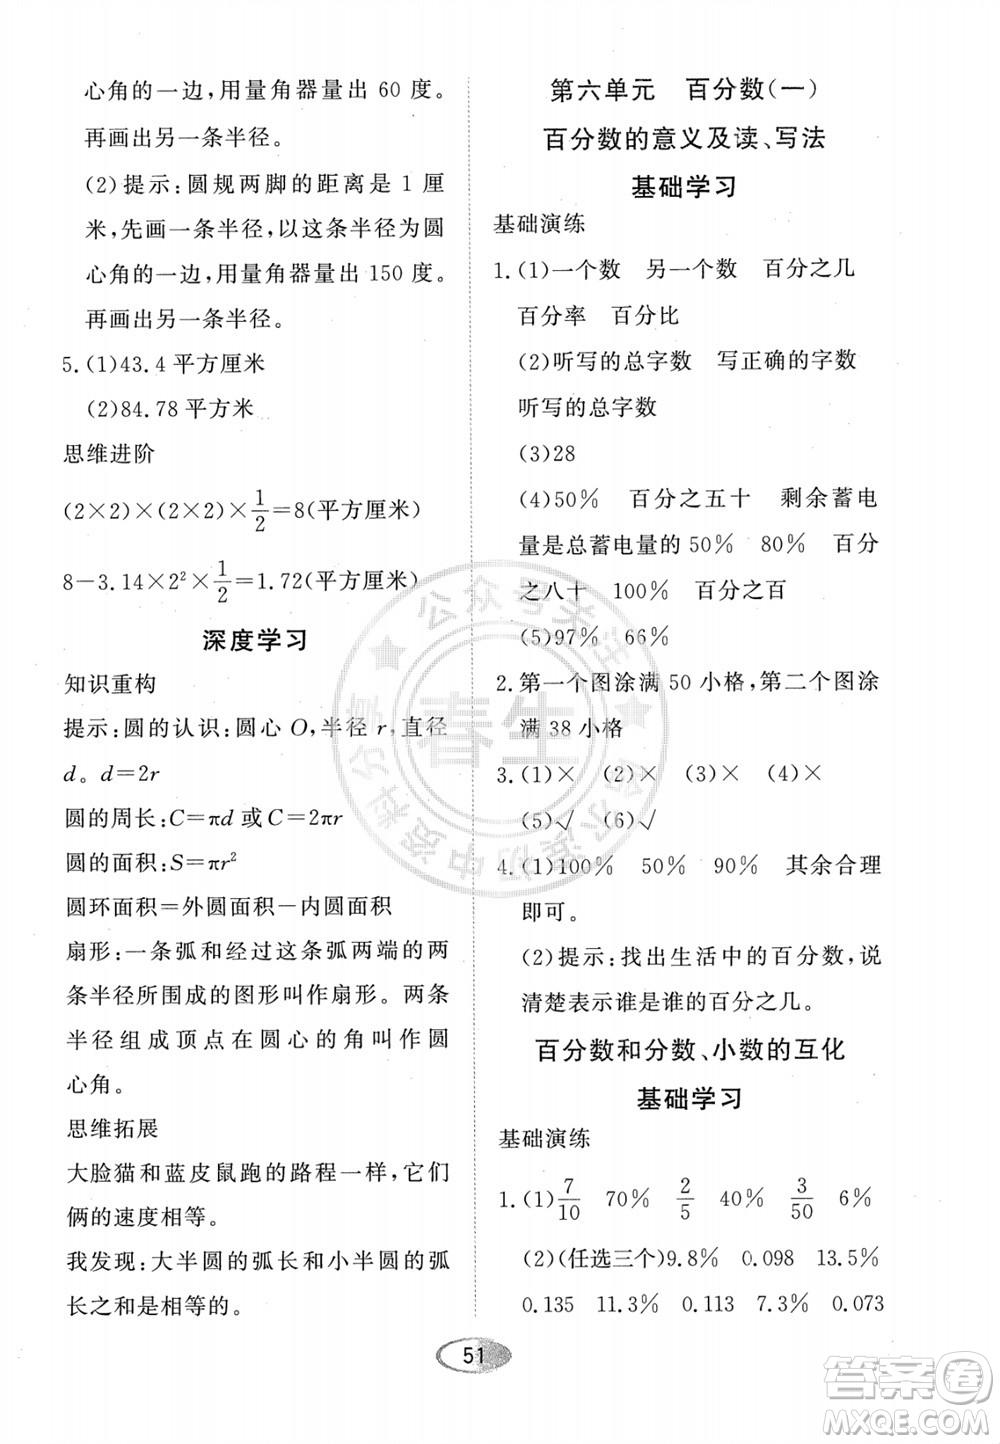 心角的一边,用量角器量出 60 度。
再画出另一条半径。
(2)提示:圆规两脚的距离是 1 厘
米,先画一条半径,以这条半径为圆
心角的一边,用量角器量出 150 度。
再画出另一条半径。
5.(1)43.4 平方厘米
(2)84.78 平方米
思维进阶
(2×2)×(2×2)×1/2=8(平方厘米)
8-3.14×2²×1/2=1.72(平方厘米)
深度学习
知识重构
提示:圆的认识:圆心 O,半径 r,直径
d。d=2r
圆的周长:C=πd 或 C=2πr
圆的面积:S=πr²
圆环面积=外圆面积-内圆面积
扇形:一条弧和经过这条弧两端的两
条半径所围成的图形叫作扇形。两条
半径组成顶点在圆心的角叫作圆
心角。
思维拓展
大脸猫和蓝皮鼠跑的路程一样,它们
俩的速度相等。
我发现:大半圆的弧长和小半圆的弧
长之和是相等的。
第六单元 百分数(一)
百分数的意义及读、写法
基础学习
基础演练
1.(1)一个数 另一个数 百分之几
百分率 百分比
(2)听写的总字数 写正确的字数
听写的总字数
(3)28
(4)50% 百分之五十 剩余蓄电
量是总蓄电量的 50% 80% 百分
之八十 100% 百分之百
(5)97% 66%
2.第一个图涂满 50 小格,第二个图涂
满 38 小格
3.(1)× (2)× (3)× (4)×
(5)√ (6)√
4.(1)100% 50% 90% 其余合理
即可。
(2)提示:找出生活中的百分数,说
清楚表示谁是谁的百分之几。
百分数和分数、小数的互化
基础学习
基础演练
1.(1)7/10 70% 2/5 40% 3/50 6%
(2)(任选三个)9.8% 0.098 13.5%
0.135 11.3% 0.113 7.3% 0.073
51
公众号关注
哈尔滨初中资料分享
春生
答案圈
MXQE.COM